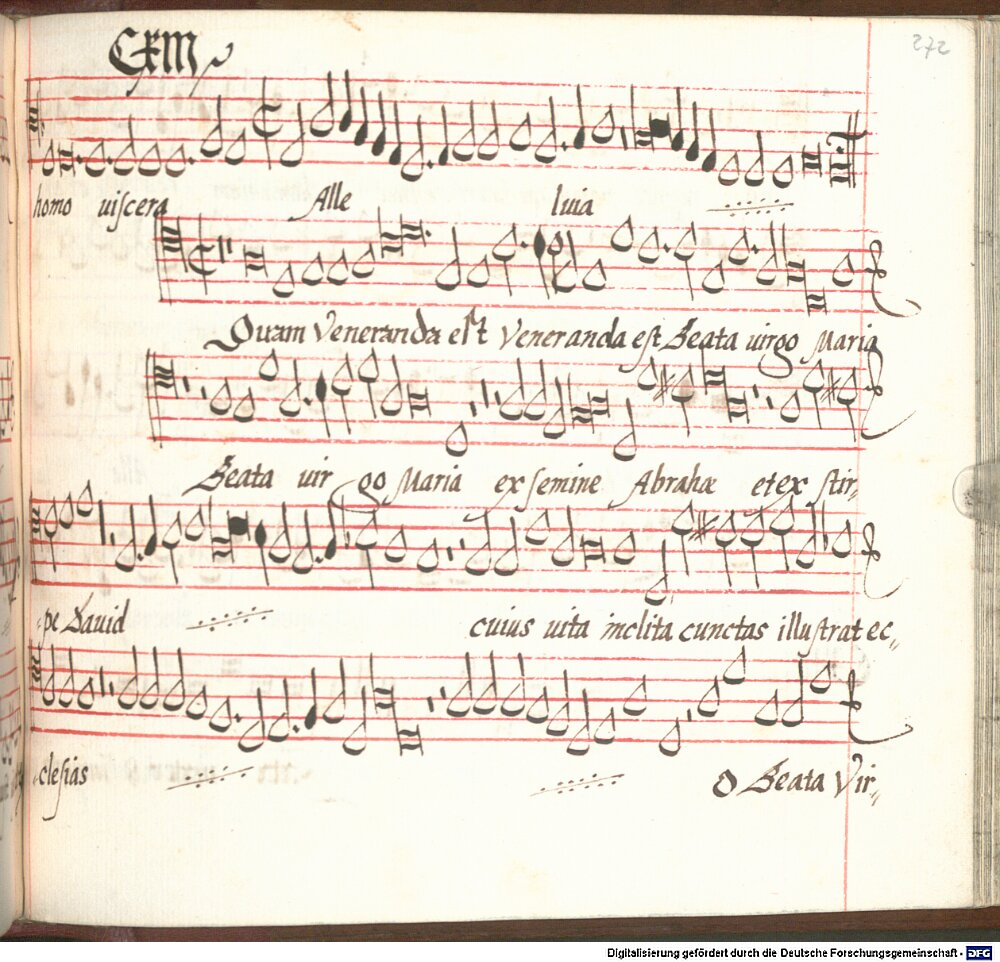 272
homo uiscera Alle luia
Quam Veneranda est Veneranda est Beata uirgo Maria
Beata uir go Maria ex semine Abrahæ et ex stir
pe Dauid cuius uita inclita cunctas illustrat ec
clesias O Beata Vir
Digitalisierung gefördert durch die Deutsche Forschungsgemeinschaft - DFG